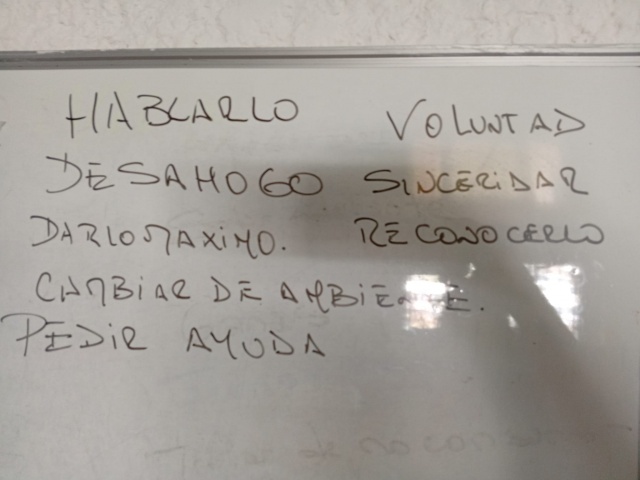 HABLARLO VOLUNTAD
DESAHOGO SINCERIDAR
DARLO MAXIMO. RECONOCERLO
CAMBIAR DE AMBIENTE.
PEDIR AYUDA